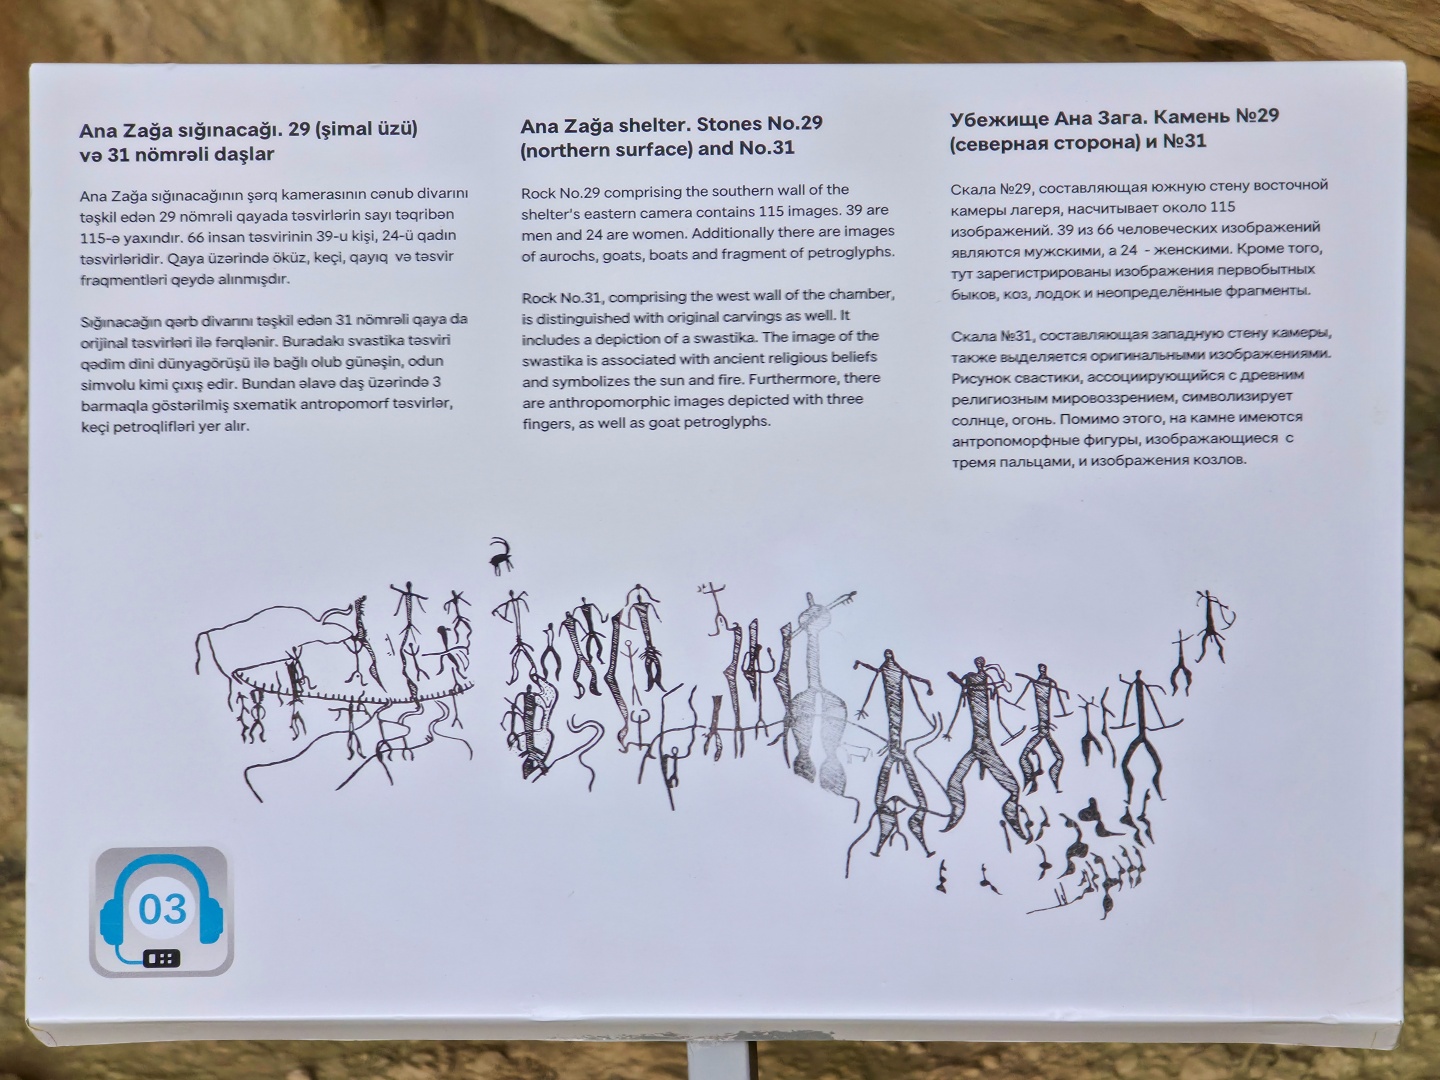 Ana Zağa sığınacağı. 29 (şimal üzü)
və 31 nömrəli daşlar
Ana Zağa sığınacağının şərq kamerasının cənub divarını
təşkil edən 29 nömrəli qayada təsvirlərin sayı təqribən
115-ə yaxındır. 66 insan təsvirinin 39-u kişi, 24-ü qadın
təsvirləridir. Qaya üzərində öküz, keçi, qayıq və təsvir
fraqmentləri qeydə alınmışdır.
Sığınacağın qərb divarını təşkil edən 31 nömrəli qaya da
orijinal təsvirləri ilə fərqlənir. Buradakı svastika təsviri
qədim dini dünyagörüşü ilə bağlı olub günəşin, odun
simvolu kimi çıxış edir. Bundan əlavə daş üzərində 3
barmaqla göstərilmiş sxematik antropomorf təsvirlər,
keçi petroqlifləri yer alır.
Ana Zağa shelter. Stones No.29
(northern surface) and No.31
Rock No.29 comprising the southern wall of the
shelter's eastern camera contains 115 images. 39 are
men and 24 are women. Additionally there are images
of aurochs, goats, boats and fragment of petroglyphs.
Rock No.31, comprising the west wall of the chamber,
is distinguished with original carvings as well. It
includes a depiction of a swastika. The image of the
swastika is associated with ancient religious beliefs
and symbolizes the sun and fire. Furthermore, there
are anthropomorphic images depicted with three
fingers, as well as goat petroglyphs.
Убежище Ана Зага. Камень №29
(северная сторона) и №31
Скала №29, составляющая южную стену восточной
камеры лагеря, насчитывает около 115
изображений. 39 из 66 человеческих изображений
являются мужскими, а 24 - женскими. Кроме того,
тут зарегистрированы изображения первобытных
быков, коз, лодок и неопределённые фрагменты.
Скала №31, составляющая западную стену камеры,
также выделяется оригинальными изображениями.
Рисунок свастики, ассоциирующийся с древним
религиозным мировоззрением, символизирует
солнце, огонь. Помимо этого, на камне имеются
антропоморфные фигуры, изображающиеся с
тремя пальцами, и изображения козлов.
03